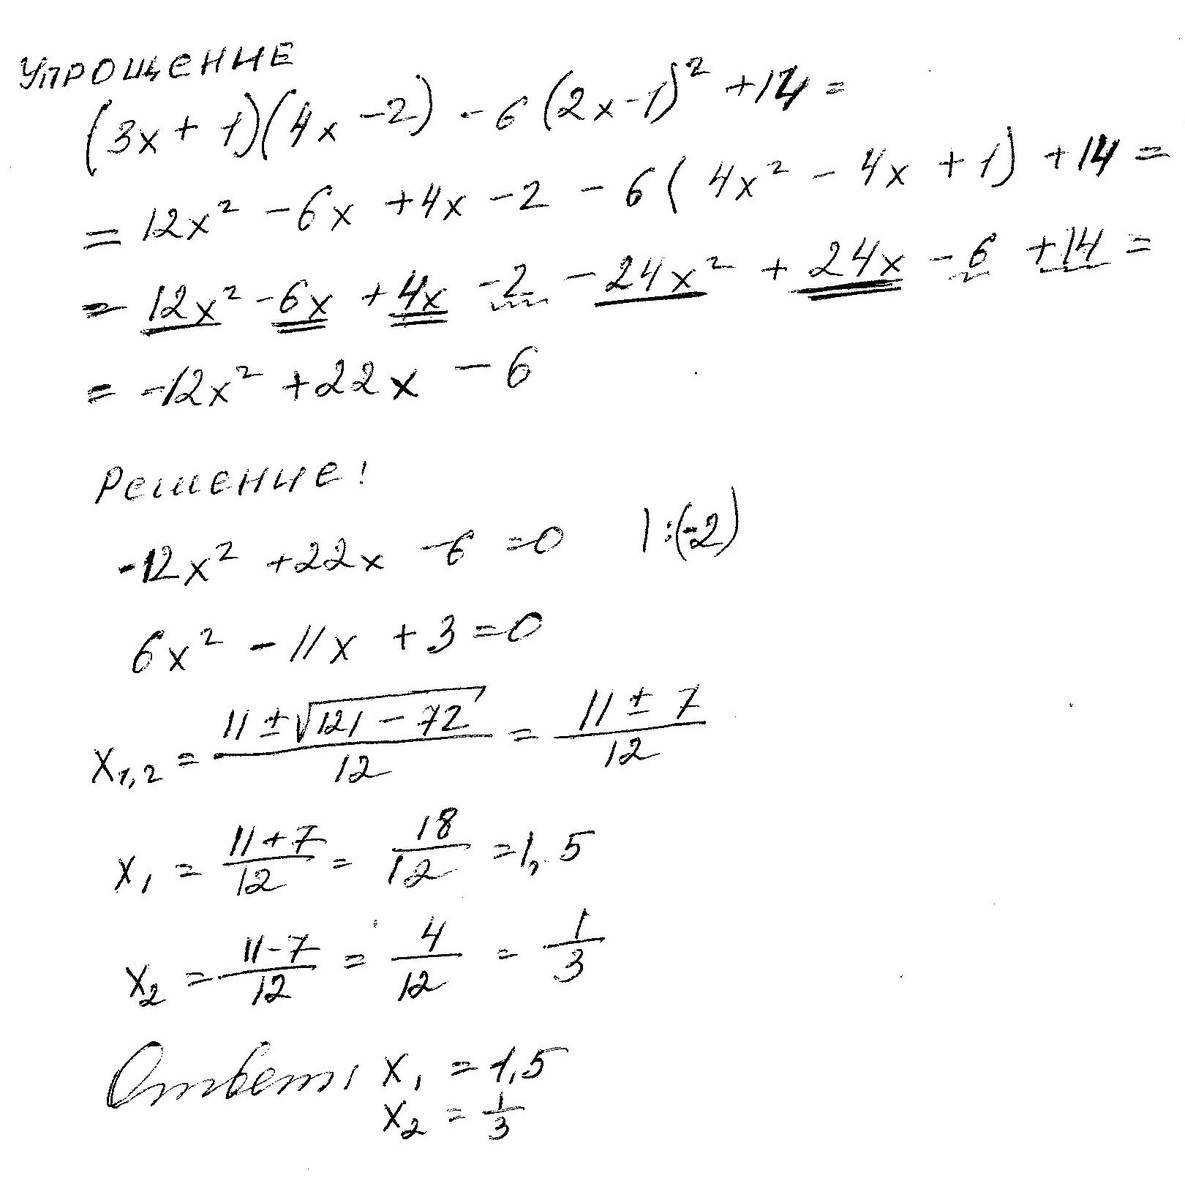 Упрощение
(3x + 1)(4x - 2) - 6 (2x - 1)² + 14 =
= 12x² - 6x + 4x - 2 - 6 ( 4x² - 4x + 1) + 14 =
= 12x² - 6x + 4x - 2 - 24x² + 24x - 6 + 14 =
= -12x² + 22x - 6
Решение!
-12x² + 22x - 6 = 0 | :(-2)
6x² - 11x + 3 = 0
x₁,₂ = (11 ± √(121 - 72))/12 = (11 ± 7)/12
x₁ = (11 + 7)/12 = 18/12 = 1,5
x₂ = (11 - 7)/12 = 4/12 = 1/3
Ответ: x₁ = 1,5
x₂ = 1/3